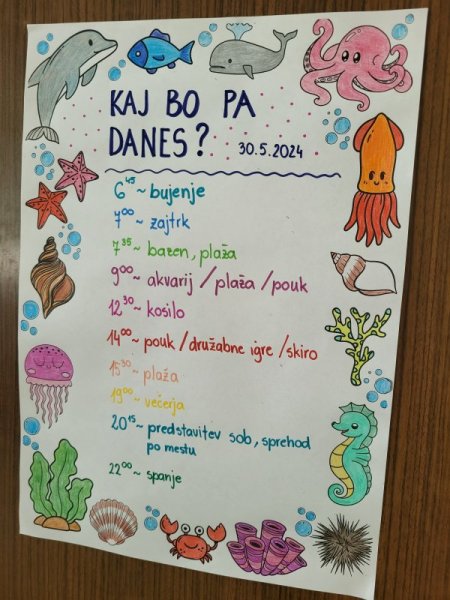 KAJ BO PA
DANES? 30.5.2024
6⁴⁵ ~ bujenje
7⁰⁰ ~ zajtrk
7³⁵ ~ bazen, plaža
9⁰⁰ ~ akvarij / plaža / pouk
12³⁰ ~ kosilo
14⁰⁰ ~ pouk / družabne igre / skiro
15³⁰ ~ plaža
19⁰⁰ ~ večerja
20¹⁵ ~ predstavitev sob, sprehod
po mestu
22⁰⁰ ~ spanje